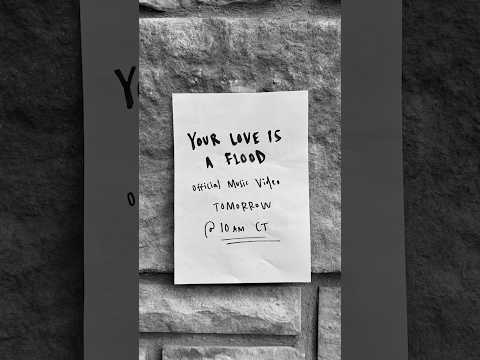 YOUR LOVE IS
A FLOOD
Official Music Video
TOMORROW
@ 10 AM CT